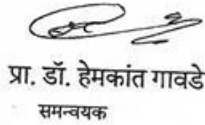 प्रा. डॉ. हेमकांत गावडे
समन्वयक